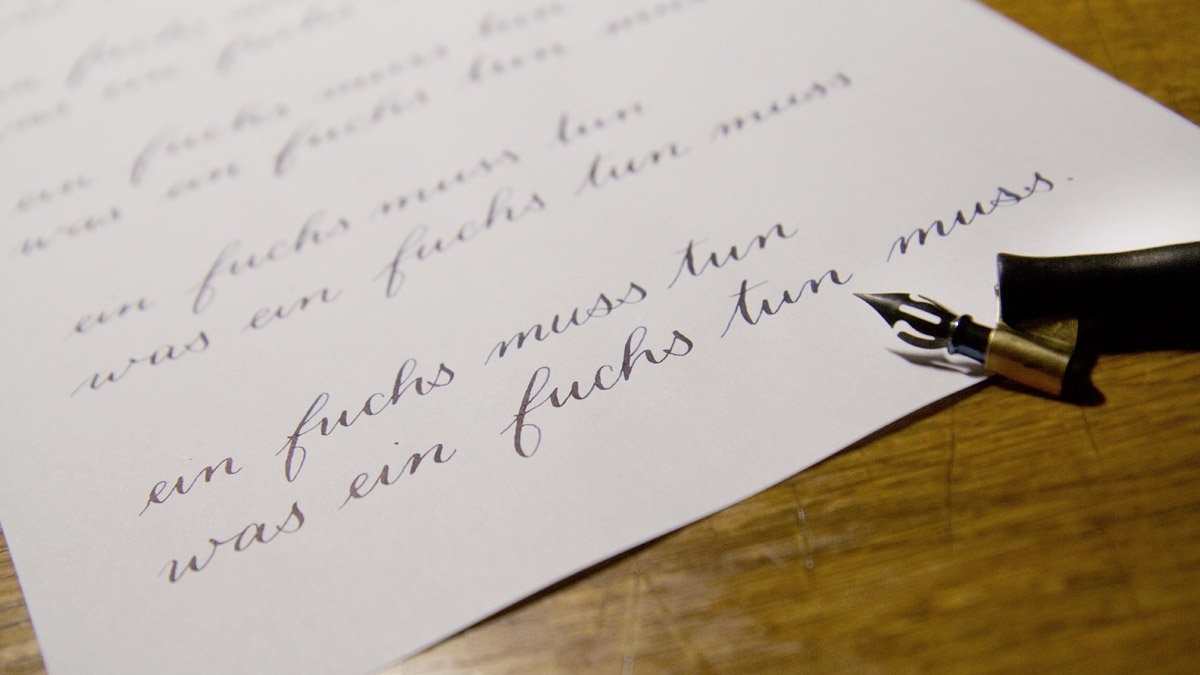 fuchs
fuchs
ein fuchs muss tun
was ein fuchs tun muss
ein fuchs muss tun
was ein fuchs tun muss
ein fuchs muss tun
was ein fuchs tun muss.